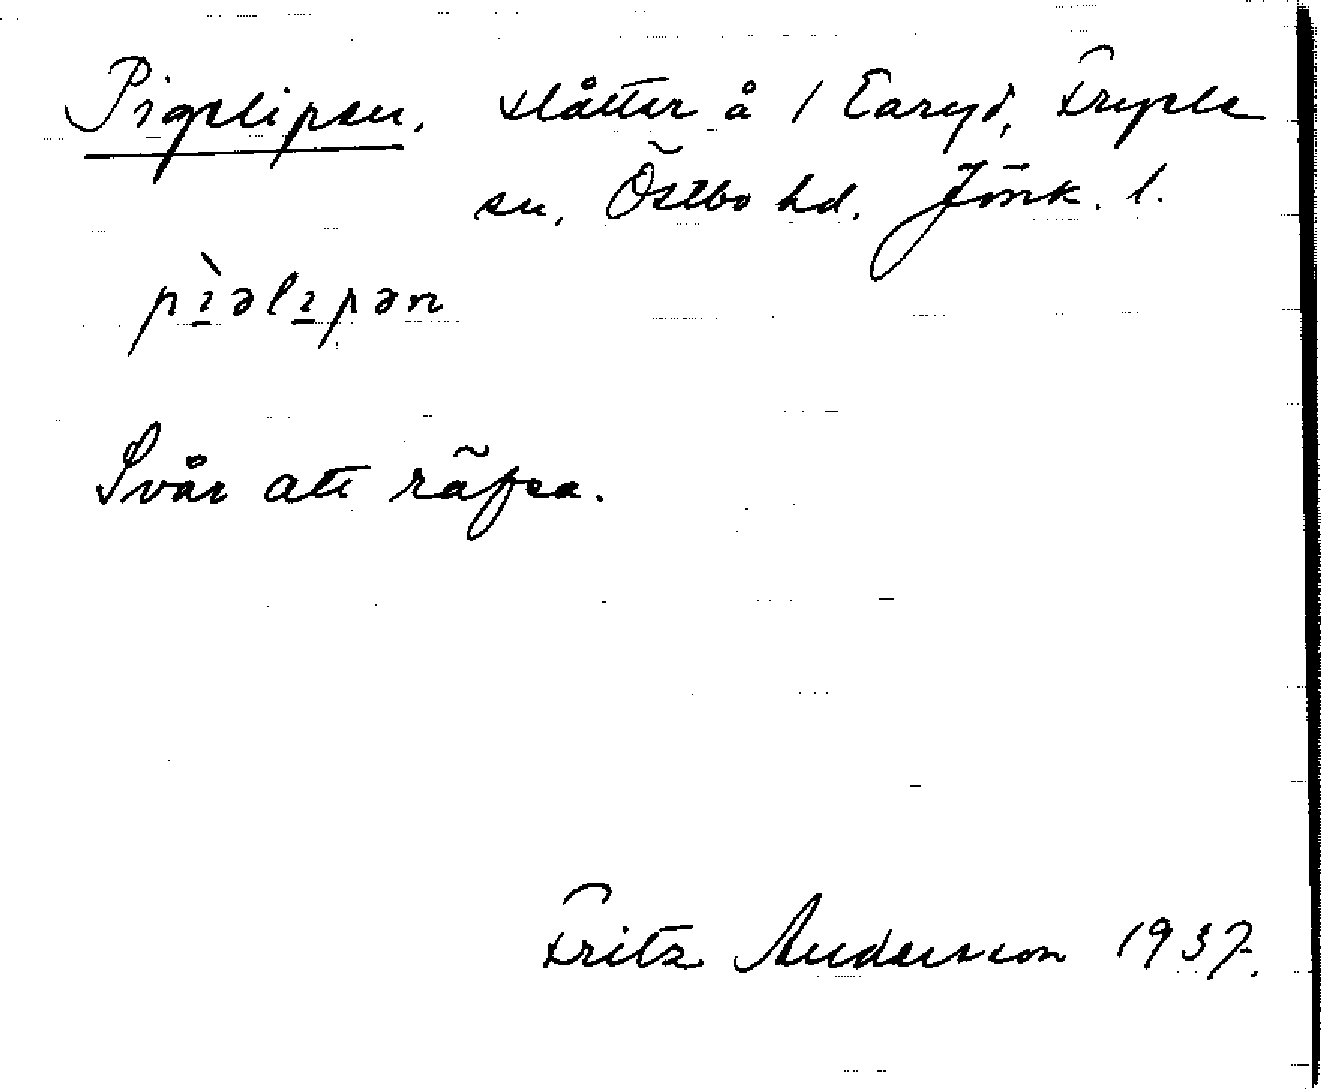 Pigelipen, slåtter å 1 Earyd, Fryele
sn, Östbo hd. Jönk. l.
pìəlıpən
Svår att räfsa.
Fritz Andersson 1937.